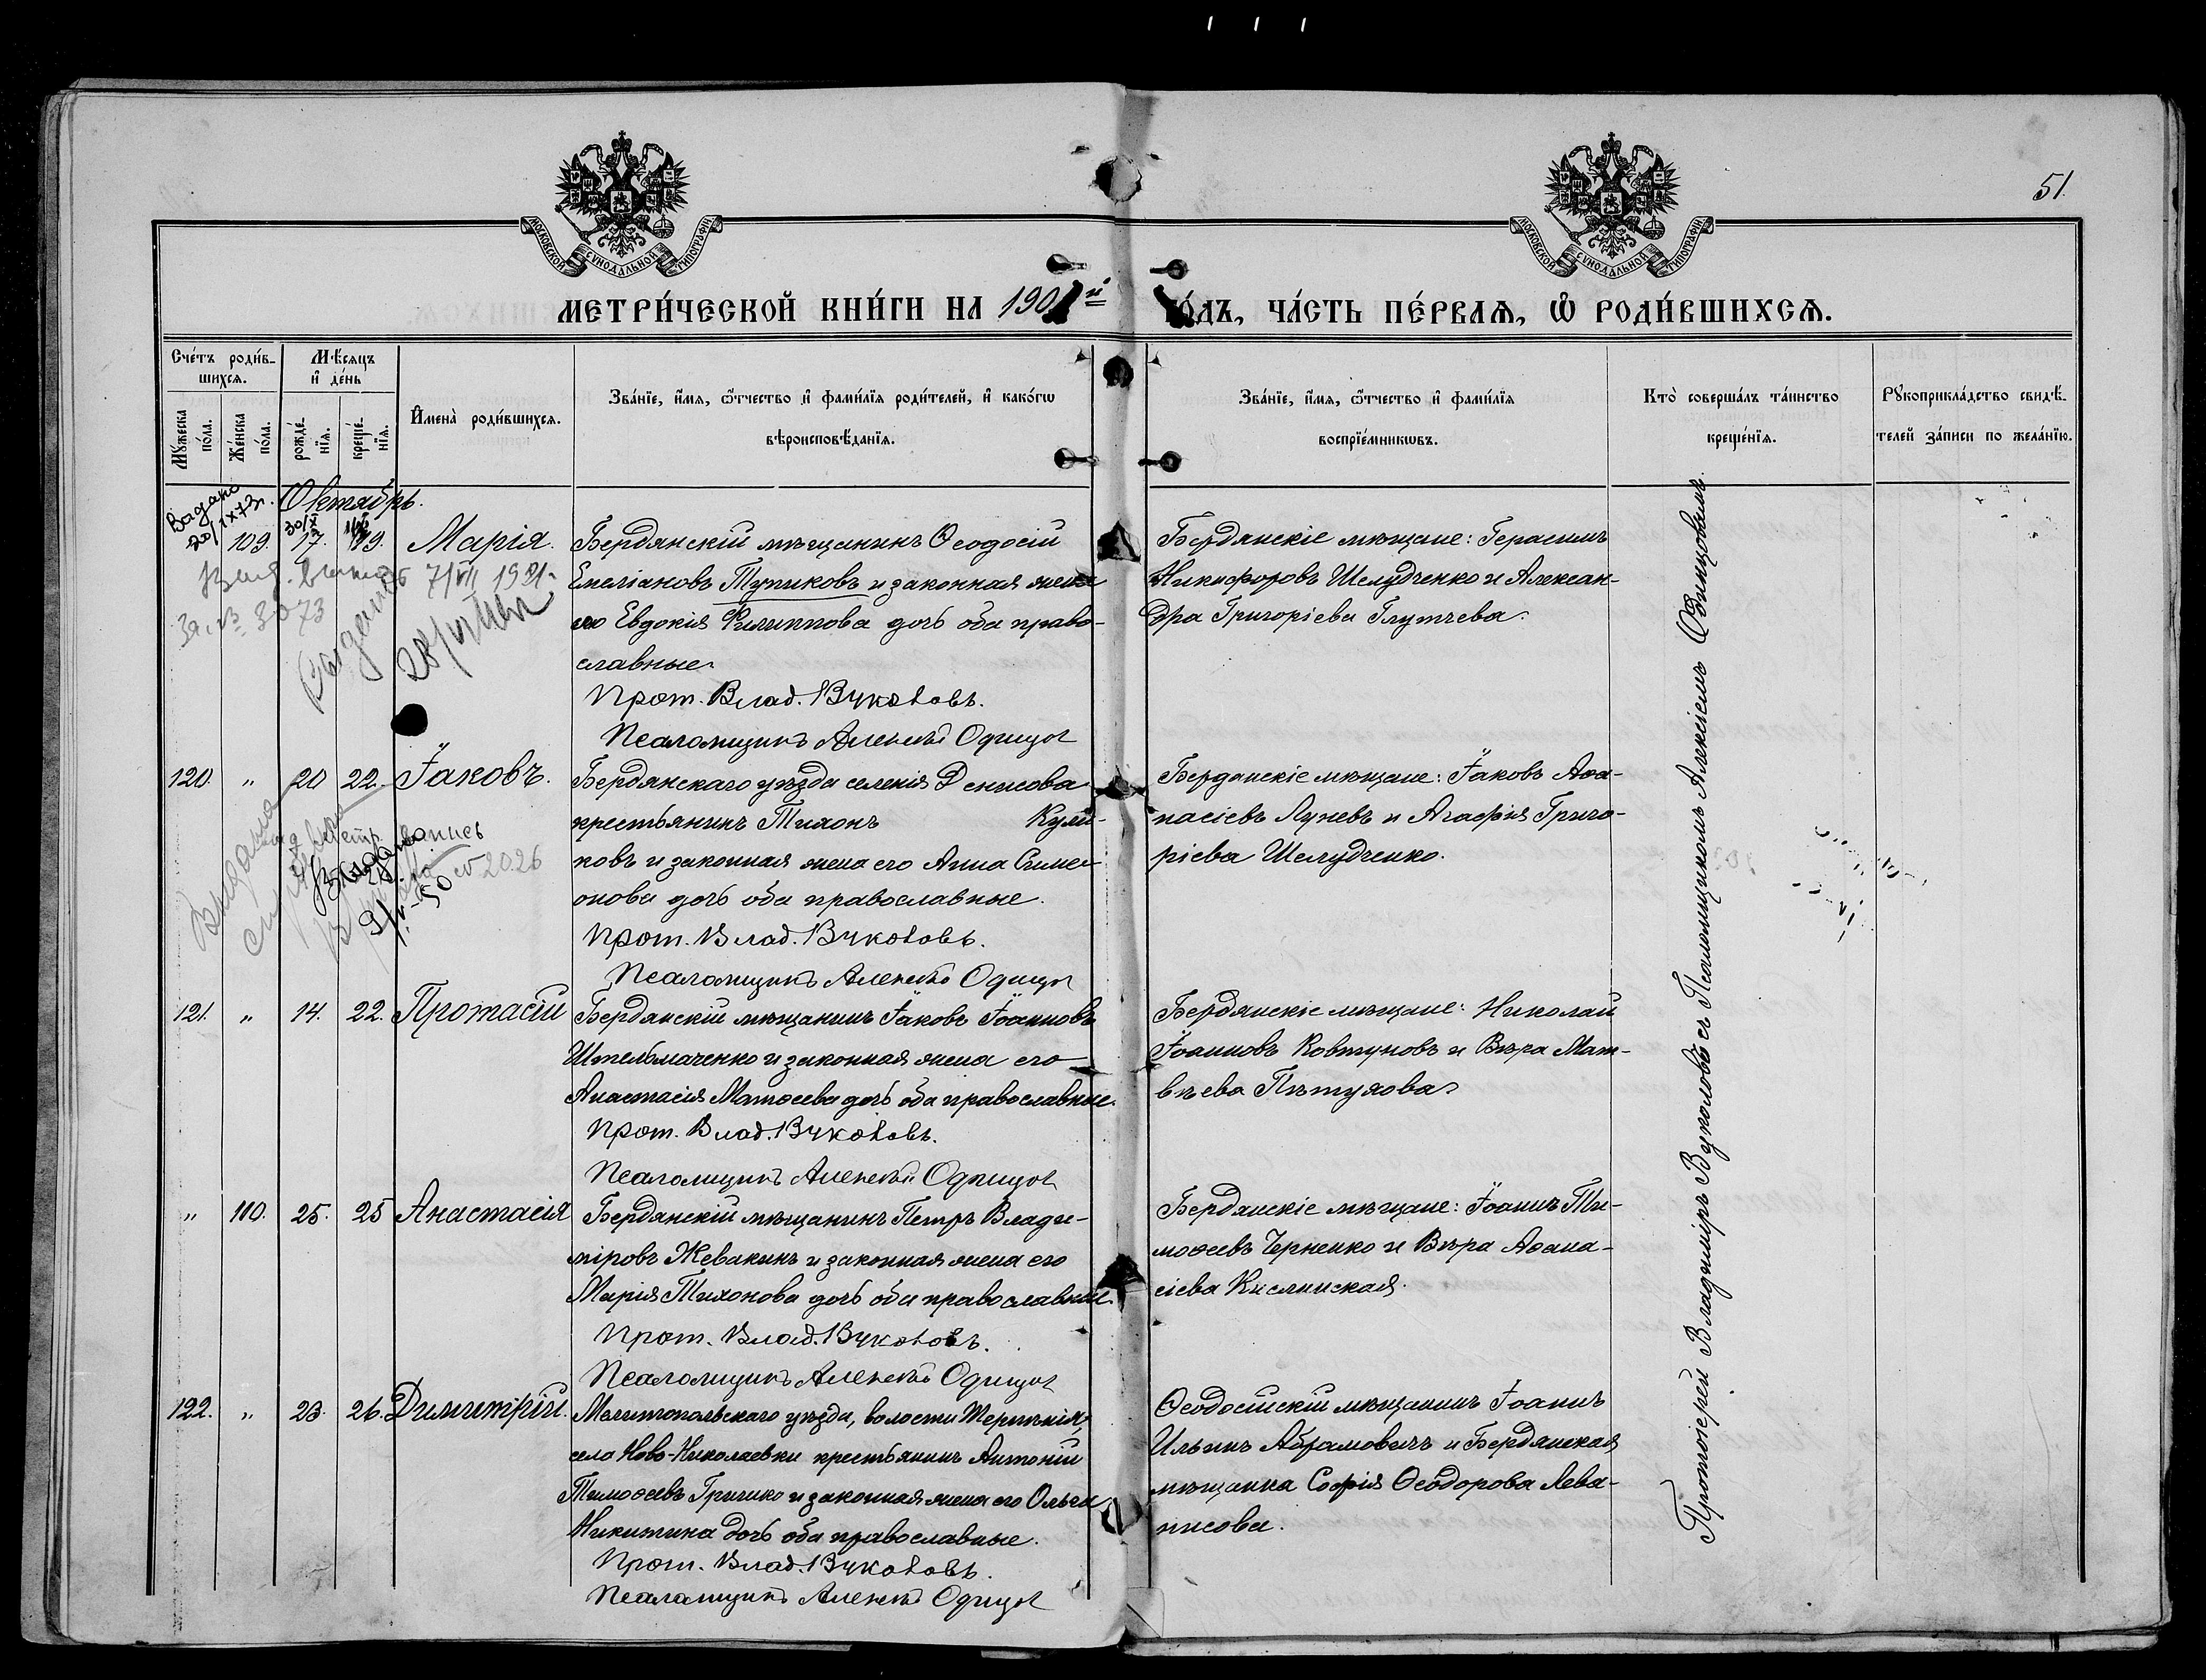 51.
МОСКОВСКОЙ СѴНОДАЛЬНОЙ ТИПОГРАФІИ
МОСКОВСКОЙ СѴНОДАЛЬНОЙ ТИПОГРАФІИ
МЕТРИ́ЧЕСКОЙ КНИ́ГИ НА 190 й ГО́ДЪ, ЧА́СТЬ ПЕ́РВАѦ, Ѡ РОДИ́ВШИХСѦ.
Сче́тъ роди́в-
шихсѧ.
Мꙋ́жеска по́ла.
Же́нска по́ла.
Мѣ́сѧцъ
и҆ де́нь
рожде́-
нїѧ.
креще́-
нїѧ.
И҆мена̀ роди́вшихсѧ.
Зва́нїе, и҆́мѧ, ѻ҆́тчество и҆ фами́лїѧ роди́телей, и҆ како́гѡ
вѣроисповѣ́данїѧ.
Зва́нїе, и҆́мѧ, ѻ҆́тчество и҆ фами́лїѧ
воспрїе́мникѡвъ.
Кто̀ соверша́лъ та́инство
креще́нїѧ.
Рꙋкоприкла́дство свидѣ́-
телей за́писи по жела́нїю.
Октябрь.
109. 17. 19. Марія. Бердянскій мѣщанинъ Ѳеодосій
Емеліановъ Тупиковъ и законная жена
его Евдокія Филиппова дочь оба право-
славные.
Прот. Влад. Вуколовъ.
Псаломщикъ Алексѣй Одинцов
Бердянскіе мѣщане: Герасимъ
Никифоровъ Шелудченко и Алексан-
дра Григоріева
7/VII 1931.
3073
Выдано
120. „ 20 22. Іаковъ. Бердянскаго уѣзда селенія Денисова
крестьянинъ Тихонъ Кули-
ковъ и законная жена его Анна Симе-
онова дочь оба православные.
Прот. Влад. Вуколовъ.
Псаломщикъ Алексѣй Одинцов
Бердянскіе мѣщане: Іаковъ Аѳа-
насіевъ Луневъ и Агафія Григо-
ріева Шелудченко.
Выдана
121. „ 14. 22. Протасій Бердянскій мѣщанинъ Іаковъ Іоанновъ
Штельмаченко и законная жена его
Анастасія Матѳеева дочь оба православные.
Прот. Влад. Вуколовъ.
Псаломщикъ Алексѣй Одинцов
Бердянскіе мѣщане: Николай
Іоанновъ Ковтуновъ и Вѣра Мат-
вѣева Пѣтухова
„ 110. 25. 25 Анастасія Бердянскій мѣщанинъ Петръ Влади-
міровъ Жевакинъ и законная жена его
Марія Тихонова дочь оба православные.
Прот. Влад. Вуколовъ.
Псаломщикъ Алексѣй Одинцов
Бердянскіе мѣщане: Іоаннъ Ти-
моѳеевъ Черненко и Вѣра Аѳана-
сіева Кислинская.
122. „ 23. 26. Димитрій. Мелитопольскаго уѣзда, волости
села Ново-Николаевки крестьянинъ Антоній
Тимоѳеевъ Гричко и законная жена его Ольга
Никитина дочь оба православные.
Прот. Влад. Вуколовъ.
Псаломщикъ Алексѣй Одинцов
Ѳеодосійскій мѣщанинъ Іоаннъ
Ильинъ Абрамовичъ и Бердянская
мѣщанка Софія Ѳеодорова Лева-
нисова.
Протоіерей Владиміръ Вуколовъ съ Псаломщикомъ Алексіемъ Одинцовымъ.